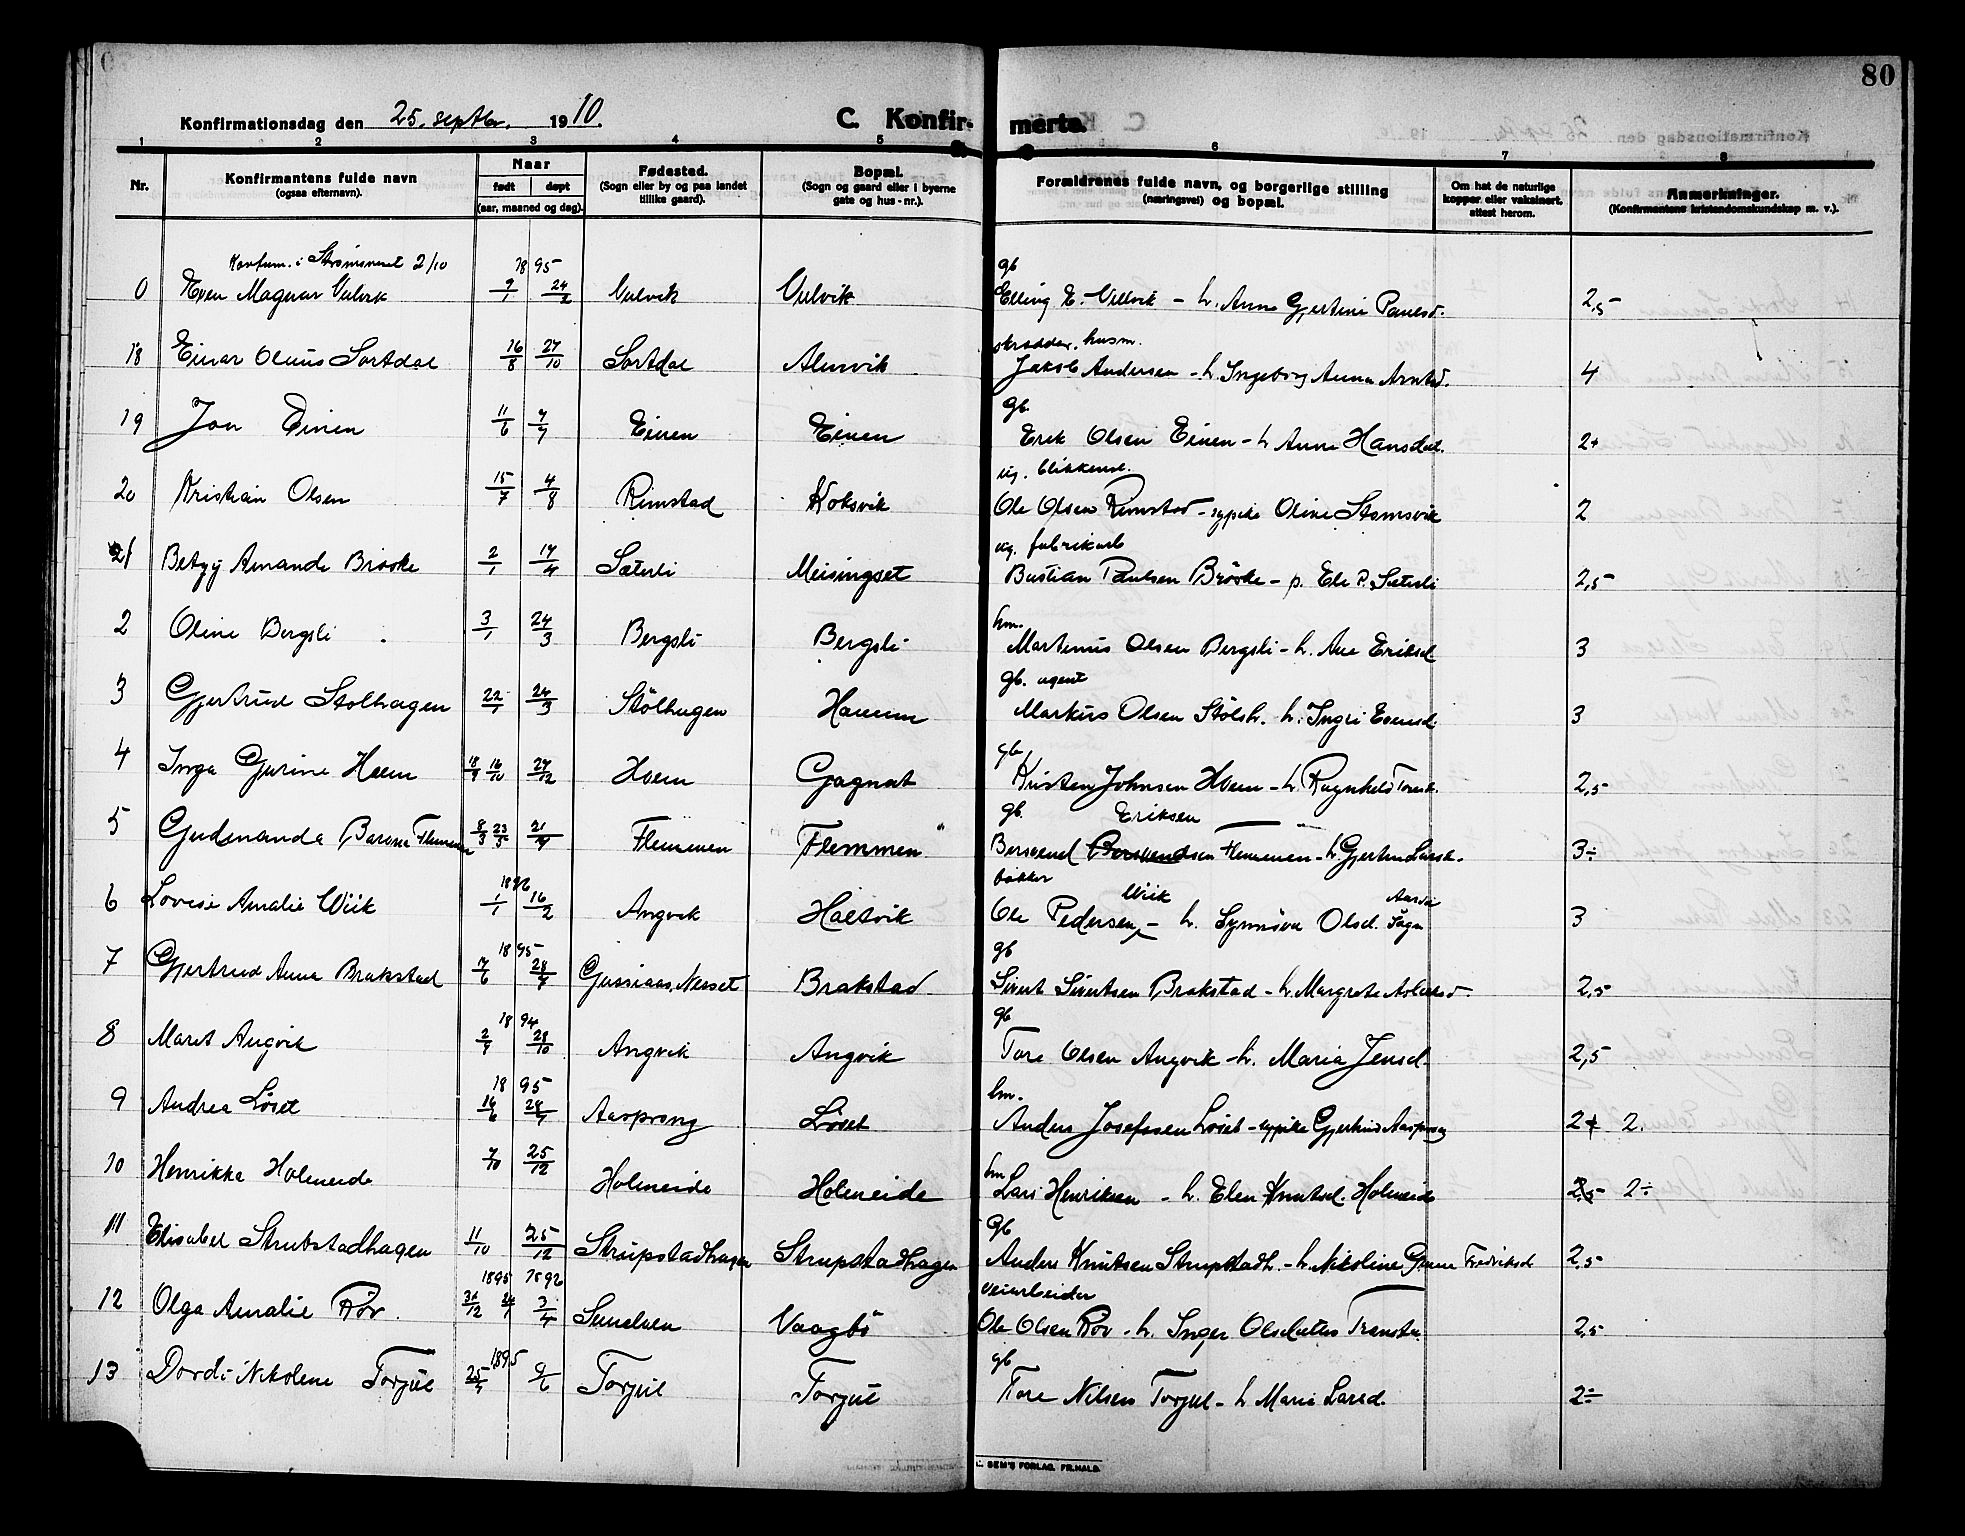 80
Konfirmationsdag den 25. septbr. 1910.
C. Konfirmerte.
1 2 3 4 5 6 7 8
Nr.
Konfirmantens fulde navn
(ogsaa efternavn).
Naar
født døpt
(aar, maaned og dag).
Fødested.
(Sogn eller by og paa landet
tillike gaard).
Bopæl.
(Sogn og gaard eller i byerne
gate og hus-nr.).
Forældrenes fulde navn, og borgerlige stilling
(næringsvei) og bopæl.
Om hat de naturlige
kopper eller vaksinert,
attest herom.
Anmerkninger.
(Konfirmantens kristendomskundskap m. v.).
Konfirm. i Strømsneset 2/10 18 95 gb
0 Even Magnar Vulvik 9/1 24/2 Vulvik Vulvik Elling E. Vullvik - h. Anne Gjertine Paulsd. 2,5
skrædder, husm.
18 Einar Olaus Sortdal 16/8 27/10 Sortdal Alunvik Jakob Andersen - h. Ingeborg Anna Arntsd. 4
gb.
19 Jon Einen 11/6 7/7 Einen Einen Erik Olsen Einen - h Anne Hansdat. 2+
ug. blikkensl.
20 Kristian Olsen 15/7 4/8 Rimstad Koksvik Ole Olsen Rimstad - pike Oline Stomsvik 2
ug. fabrikarb
21 Betzy Amanda Brøske 2/1 14/4 Sæterli Meisingset Bastian Paulsen Brøske - p. Ele P. Sæterli 2,5
hm.
2 Oline Bergsli 3/1 24/3 Bergsli Bergsli Martinus Olsen Bergsli - h. Ane Eriksd. 3
gb. agent
3 Gjertrud Stølhagen 22/1 24/3 Stølhagen Hanem Markus Olsen Stølsh. h. Ingri Evensd. 3
gb
4 Inga Gurine Hoem 18/9 16/10 27/12 Hoem Gagnat Kristen Johnsen Hoem - h. Ragnhild Toresd. 2,5
gb. Eriksen
5 Gudmanda Barona Flemmen 8/3 23/5 21/4 Flemmen Flemmen Bersvend Bersvendsen Flemmen - h. Gjertine Larsd. 3÷
1896 bakker Wiik
6 Lovise Amalie Wiik 1/1 16/2 Angvik Haltvik Ole Pedersen - h. Synnøva Olsd. 3
18 95 gb
7 Gjertrud Anna Brakstad 7/6 28/7 Gussiaas, Nesset Brakstad Sivert Sivertsen Brakstad - h. Margrete Aslaksd. 2,5
18 94 gb
8 Maret Angvik 2/9 28/10 Angvik Angvik Tore Olsen Angvik - h. Maria Jensd. 2,5
18 95 hm.
9 Andrea Løset 14/6 28/7 Aasprong Løset Anders Josefsen Løset - pike Gjertrud Aasprong 2+ 2.
hm
10 Henrikka Holmeide 7/10 25/12 Holmeide Holmeide Lars Henriksen - h. Elen Knutsd. Holmeide 2,5 2÷
gb
11 Elisabet Strupstadhagen 11/10 25/12 Strupstadhagen Strupstadhagen Anders Knutsen Strupstadh. - h. Nikoline Fredriksd 2,5
1895 1896 veiarbeider
12 Olga Amalie Røv. 31/12 3/4 Sunelven Vaagbø Ole Olsen Røv - h. Inger Olsdatter 2,5
1895 gb
13 Dordi Nikoline Torjul 25/4 9/6 Torjul Torjul Tore Nilsen Torjul - h Marie Larsd. 2÷
SEM'S FORLAG. FR.HALD.